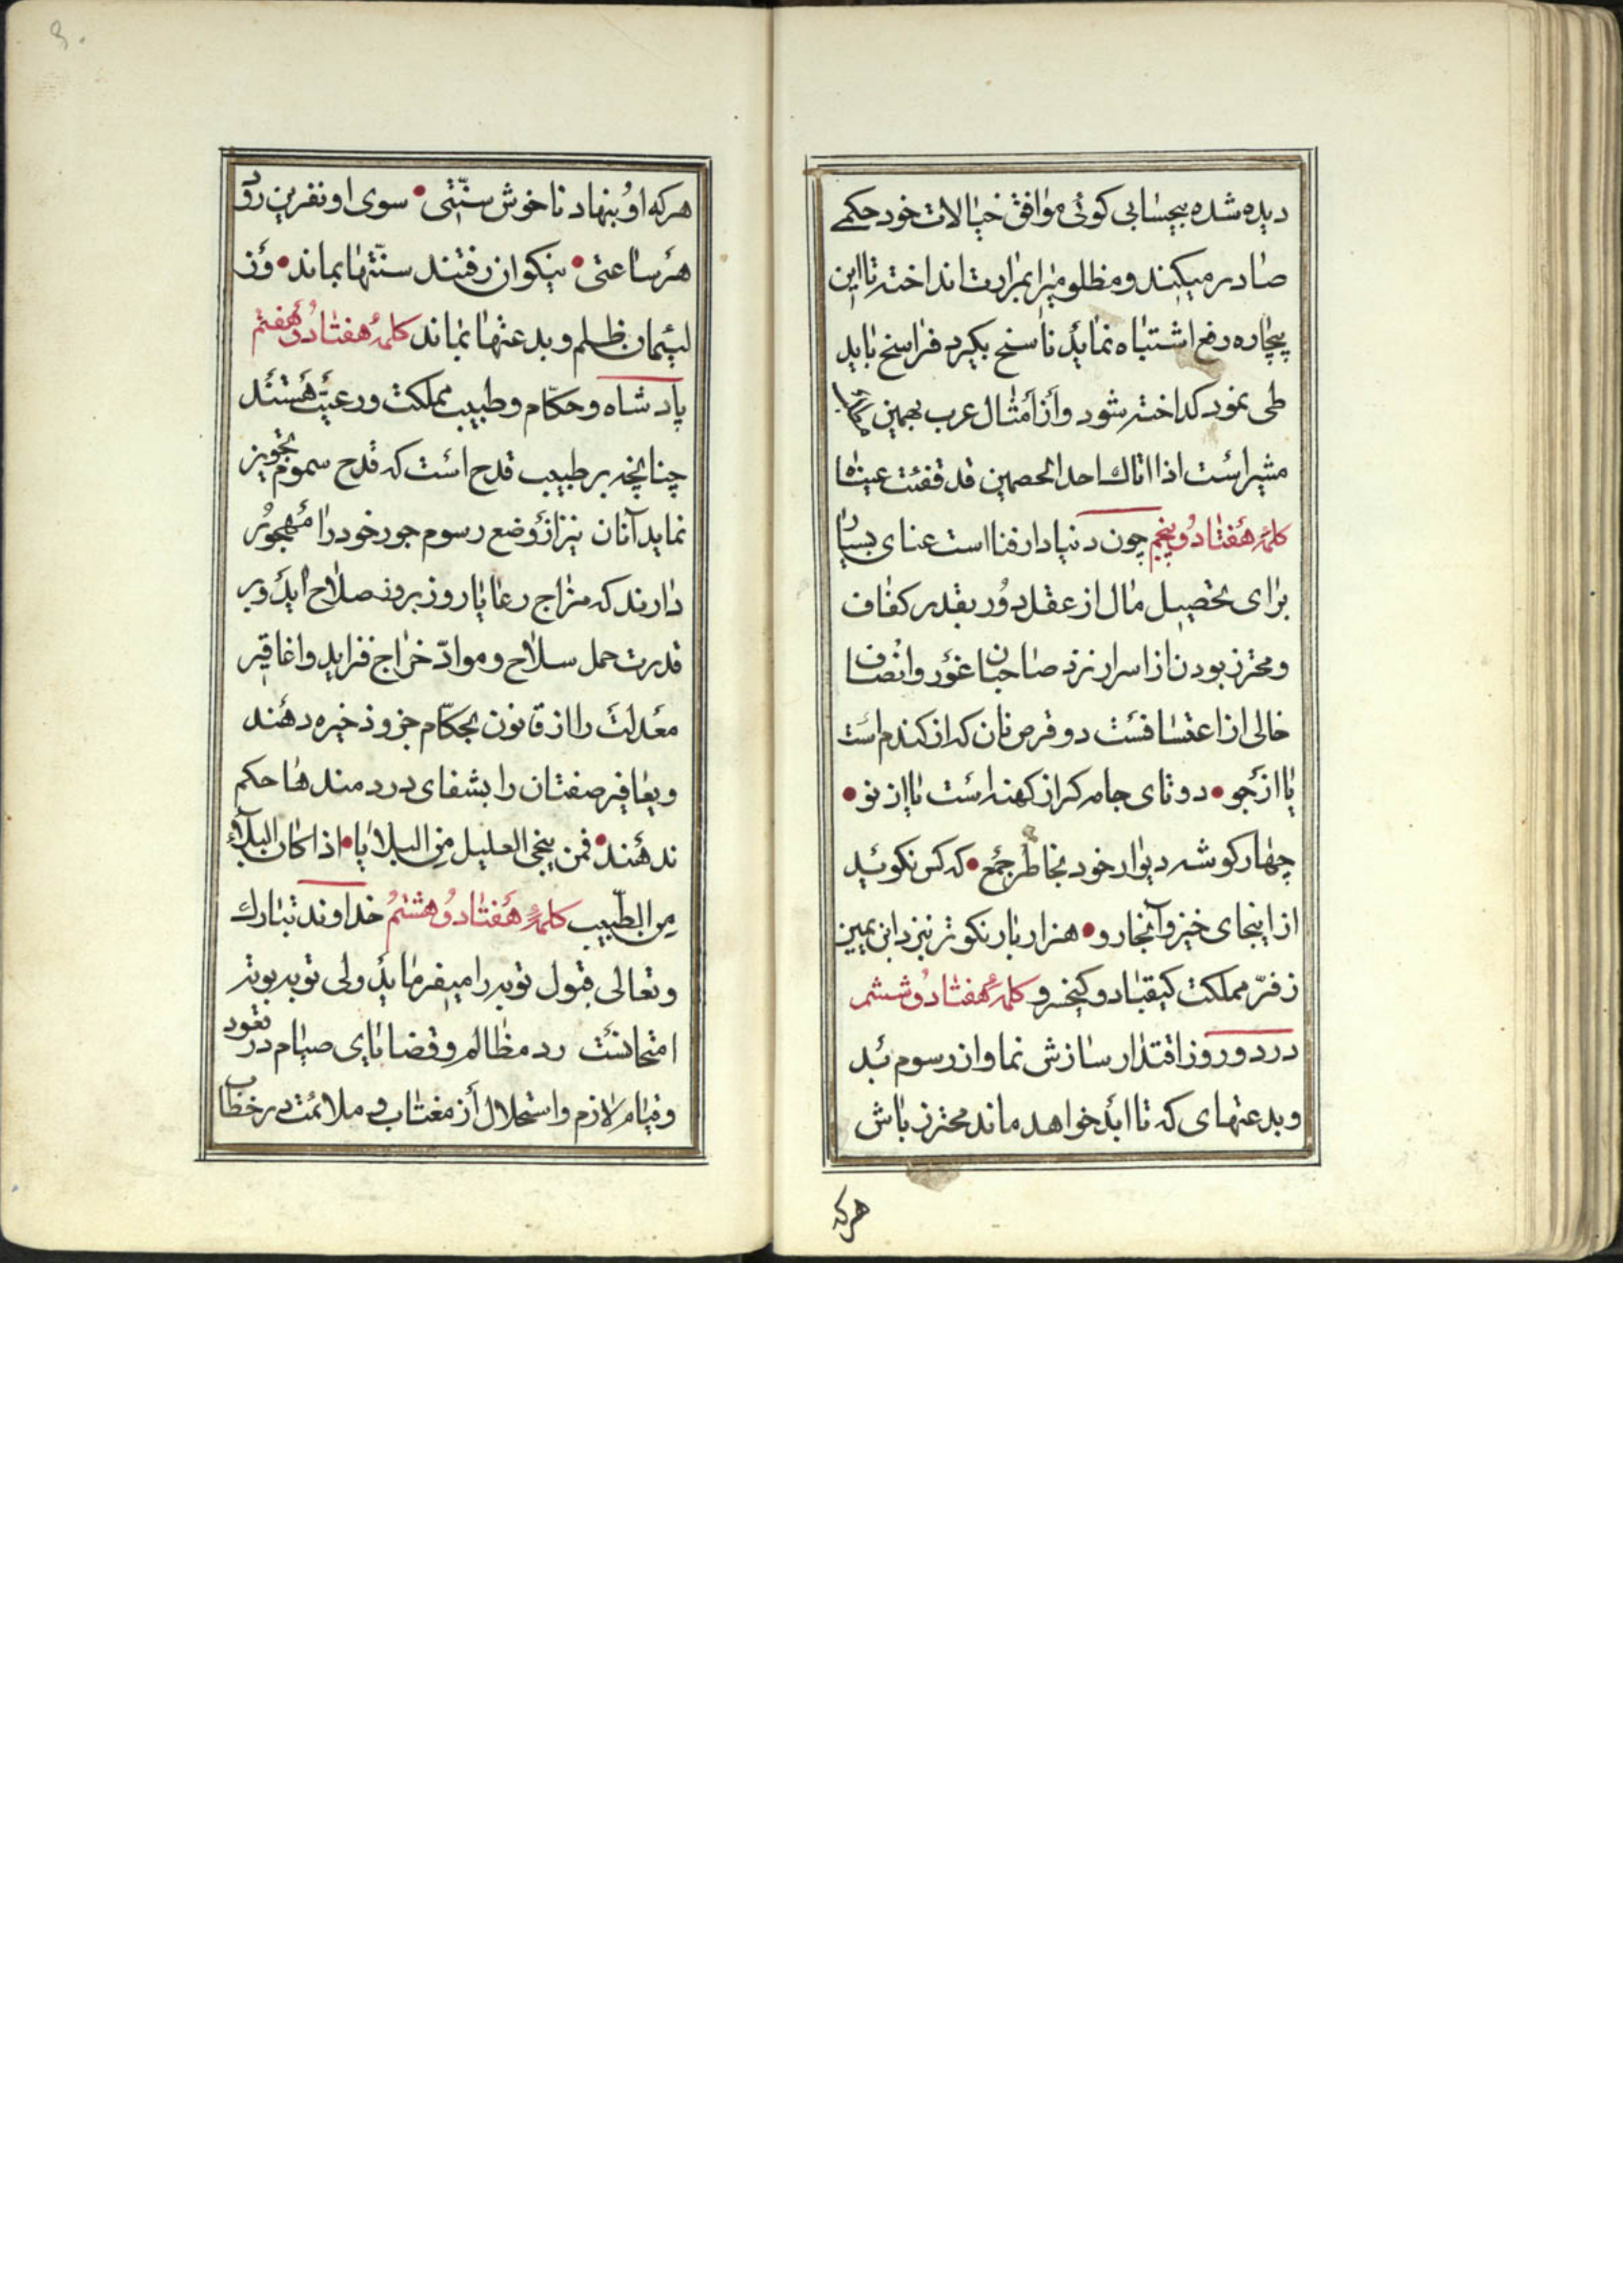 دیده شده بیحسابی کوئی موافق خیالات خود حکمے
صادر میکنند و مظلومیرا بمرارت انداخته تا این
بیچاره رفع اشتباه نماید ناسخ بکیرد فراسخ باید
طی نمود کداخته شود و از امثال عرب بهمین
مشیر است اذا اتاك احد الخصمین قد فقئت عیناه
کلمهٔ هفتاد و پنجم چون دنیا دار فنا است عنای بسیار
برای تحصیل مال از عقل دور بقدر کفاف
و محترز بودن از اسراف نزد صاحبان غور و انصاف
خالی از اعتسافست دو قرص نان کر از کندم است
یا از جو • دو تای جامه کر از کهنه است یا از نو •
چهار کوشه دیوار خود بخاطر جمع • که کس نکوید
از اینجای خیز و آنجا رو • هزار بار نکوتر بنزد ابن یمین
ز فرّ مملکت کیقباد و کیخسرو کلمهٔ هفتاد و ششم
در دو روز اقتدار سازش نما و از رسوم بد
و بدعتهای که تا ابد خواهد ماند محترز باش
هر که
هر که او بنهاد ناخوش سنّتی • سوی او نفرین رود
هر ساعتی • نیکوان رفتند سنّتها بماند • وز
لئیمان ظلم و بدعتها بماند کلمهٔ هفتاد و هفتم
پادشاه و حکّام و طبیب مملکت و رعیّت هستند
چنانچه بر طبیب قدح است که قدح سموم تجویز
نماید آنان نیز از وضع رسوم جور خود را مهجور
دارند که مزاج رعایا روز بروز صلاح اید و بر
قدرت حمل سلاح و موادّ خراج فزاید و اغاقیر
معدلت را از قانون بحکّام جزو ذخیره دهند
و یعافیر صفتان را بشفای دردمندها حکم
ندهند • فمن ینجی العلیل من البلایا • اذا کان البلاء
من الطّبیب کلمهٔ هفتاد و هشتم خداوند تبارك
و تعالی قبول توبه را میفرماید ولی توبه بوتهٔ
امتحانست رد مظالم و قضایای صیام در قعود
و قیام لازم و استحلال از مغتاب و ملائمت در خطاب